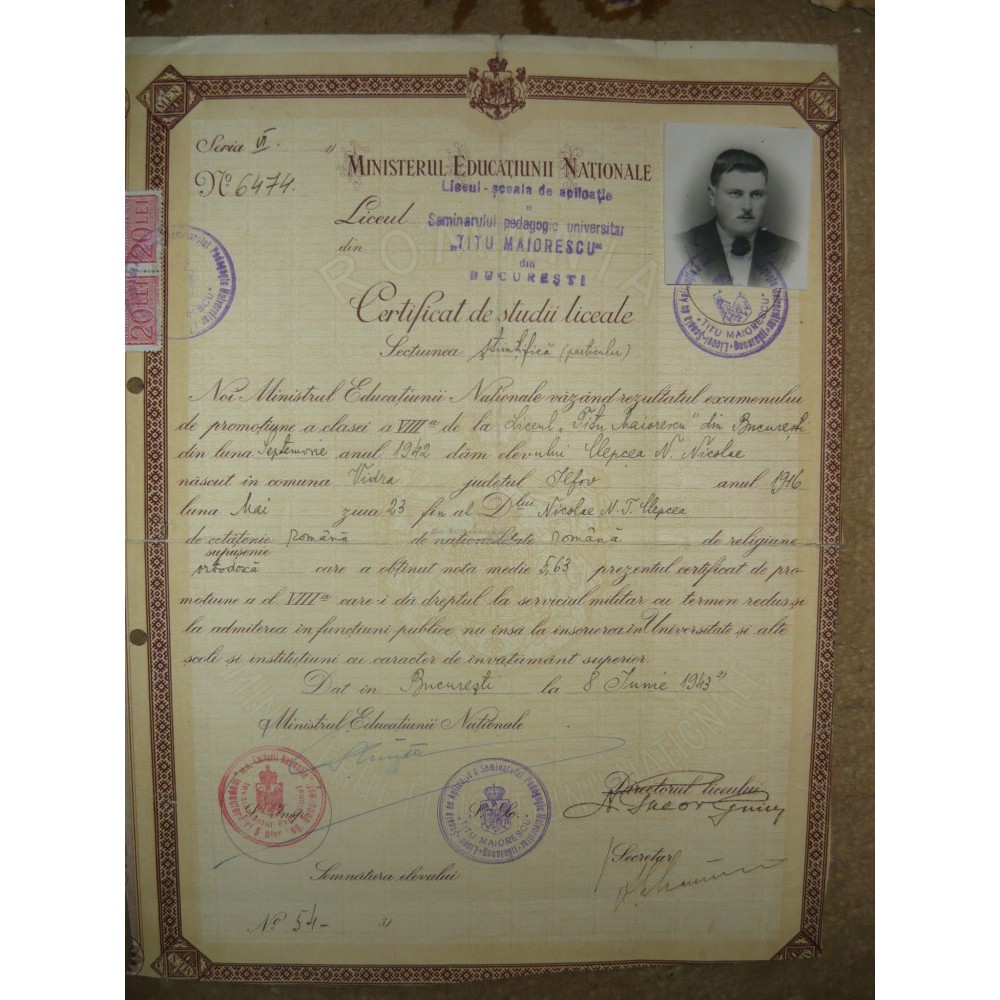 Seria VI. 1)
No. 6474.
MINISTERUL EDUCAŢIUNII NAŢIONALE
Liceul - şcoala de aplicaţie
a
Liceul Seminarului pedagogic universitar
din „TITU MAIORESCU"
din
BUCUREŞTI
ROMÂNIA
20 LEI
20 LEI
TITU MAIORESCU
Certificat de studii liceale
Secţiunea ştiinţifică (particular)
Noi Ministrul Educaţiunii Naţionale văzând rezultatul examenului
de promoţiune a clasei a VIIIa de la Liceul „Titu Maiorescu" din Bucureşti
din luna Septemvrie anul 1942 dăm elevului Clepcea N. Nicolae
născut în comuna Vidra judeţul Ilfov anul 1916
luna Mai ziua 23 fiu al Dlui Nicolae N. T. Clepcea
de cetăţenie română de naţionalitate română de religiune
supuşenie
ortodoxă care a obţinut nota medie 5,63 prezentul certificat de pro-
moţiune a cl. VIIIa care-i dă dreptul la serviciul militar cu termen redus şi
la admiterea în funcţiuni publice nu însă la înscrierea în Universitate şi alte
şcoli şi instituţiuni cu caracter de învăţământ superior.
Dat în Bucureşti la 8 Iunie 1943 2)
Ministrul Educaţiunii Naţionale
Directorul liceului
TITU MAIORESCU
Secretar
Semnătura elevului
No. 54 - 3)